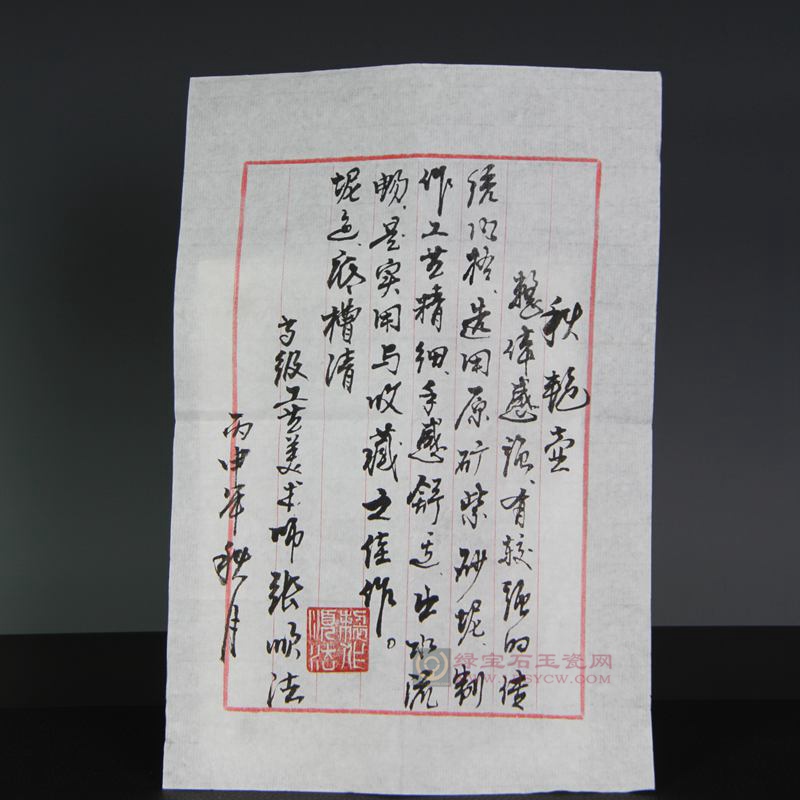 秋艳壶
整体感强、有较强的传
统风格、选用原矿紫砂坭、制
作工艺精细、手感舒适、出水流
畅、是实用与收藏之佳作。
坭色、底槽清
高级工艺美术师张顺法
丙申年秋月
顺法制作
绿宝石玉瓷网